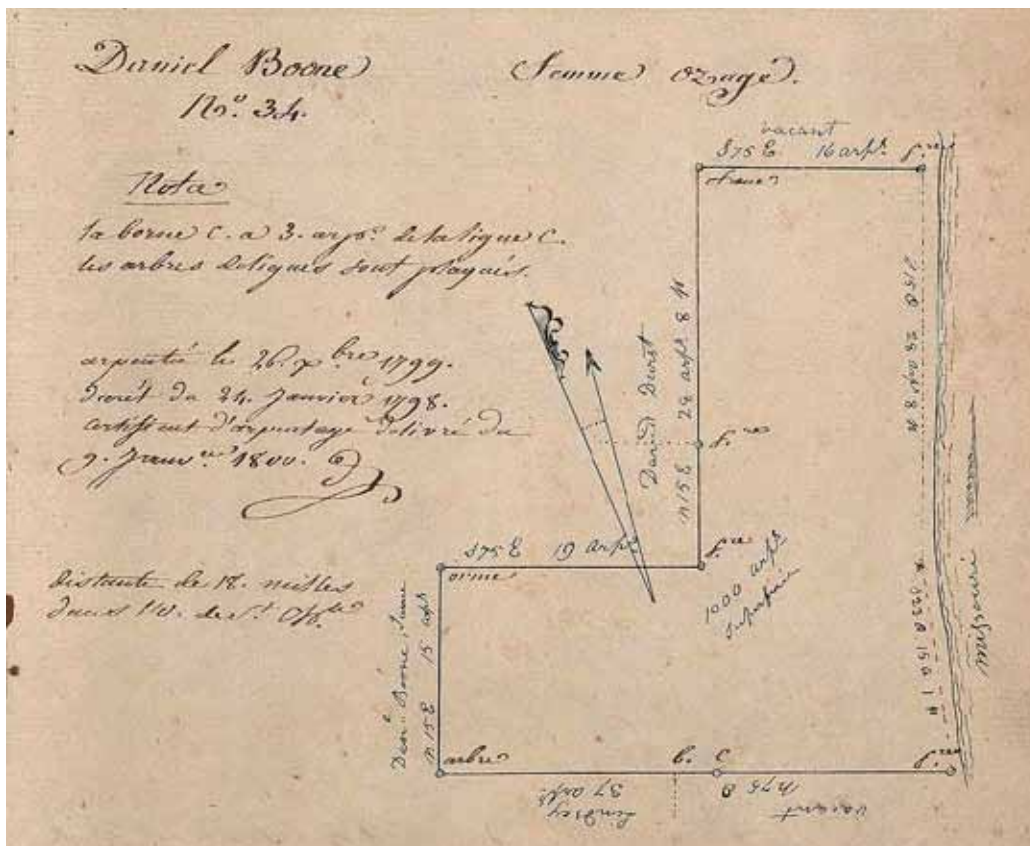 Daniel Boone
No. 34.
femme ozage.
Nota
la borne C. a 3. arps. de la ligne C.
les arbres de lignes sont plaqués.
arpenté le 26. xbre 1799.
Decrét du 24. Janvier 1798.
certificat d'arpentage delivré du
9. Janver 1800.
distante de 18. milles
dans l'O. de St. Chles
vacant
S75E 16 arps. f.re
orme
David Durst
N15E 28 arps 8 P
f.re
f.re
S75E 19 arps
orme
1000 arps
superficie
Danl. Boone, Jeune
N15E 15 arps
arbre b. C f.re
Lindsey
37 arps
N75O
vacant
S15O 28 arps 8 P
S22O 15 a 1 P
Missouri